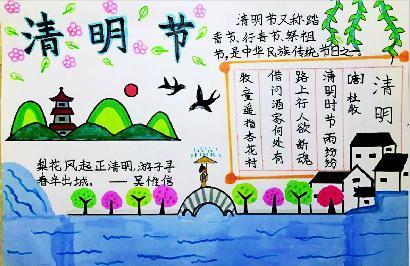 清明节
清明节又称踏
春节、行春节、祭祖
节,是中华民族传统节日之一。
清明
[唐]杜牧
清明时节雨纷纷
路上行人欲断魂
借问酒家何处有
牧童遥指杏花村
梨花风起正清明,游子寻
春半出城。——吴惟信